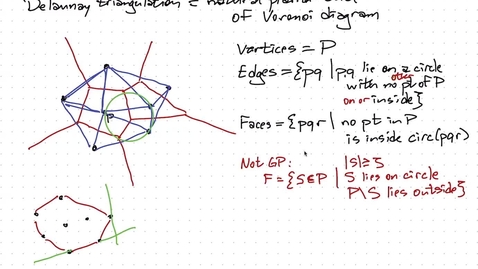 Delaunay triangulation = natural planar dual
of Voronoi diagram
Vertices = P
Edges = {pq | pq lie on a circle
with no other pt of P
on or inside}
Faces = {pqr | no pt in P
is inside circ(pqr)
Not GP: |S|≥
F = {S∈P | S lies on circle
P\S lies outside}
P